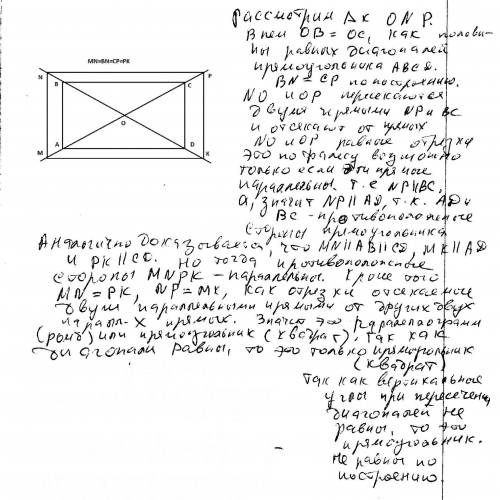 Рассмотрим Δк ONP.
В нем OB = OC, как полови-
ны равных диагоналей
прямоугольника ABCD.
BN = CP по построению.
NO и OP пересекаются
двумя прямыми NP и BC
и отсекают от прямых
NO и OP равные отрезки
Это по фалесу возможно
только если эти прямые
параллельны. т.е NP||BC,
а, значит NP||AD, т.к. AD и
BC - противоположные
стороны прямоугольника
MN=BN=CP=PK
N
P
B
C
O
A
D
M
K
Аналогично доказывается, что MN||AB||CD, MK||AD
и PK||CD. Но тогда противоположные
стороны MNPK - параллельны. Кроме того
MN = PK, NP = MK, как отрезки отсекаемые
двумя параллельными прямыми от других двух
паралл-х прямых. Значит это параллелограмм
(ромб) или прямоугольник (квадрат), так как
диагонали равны, то это только прямоугольник
(квадрат)
Так как вертикальные
углы при пересечении
диагоналей не
равны, то это
прямоугольник.
не равны по
построению.